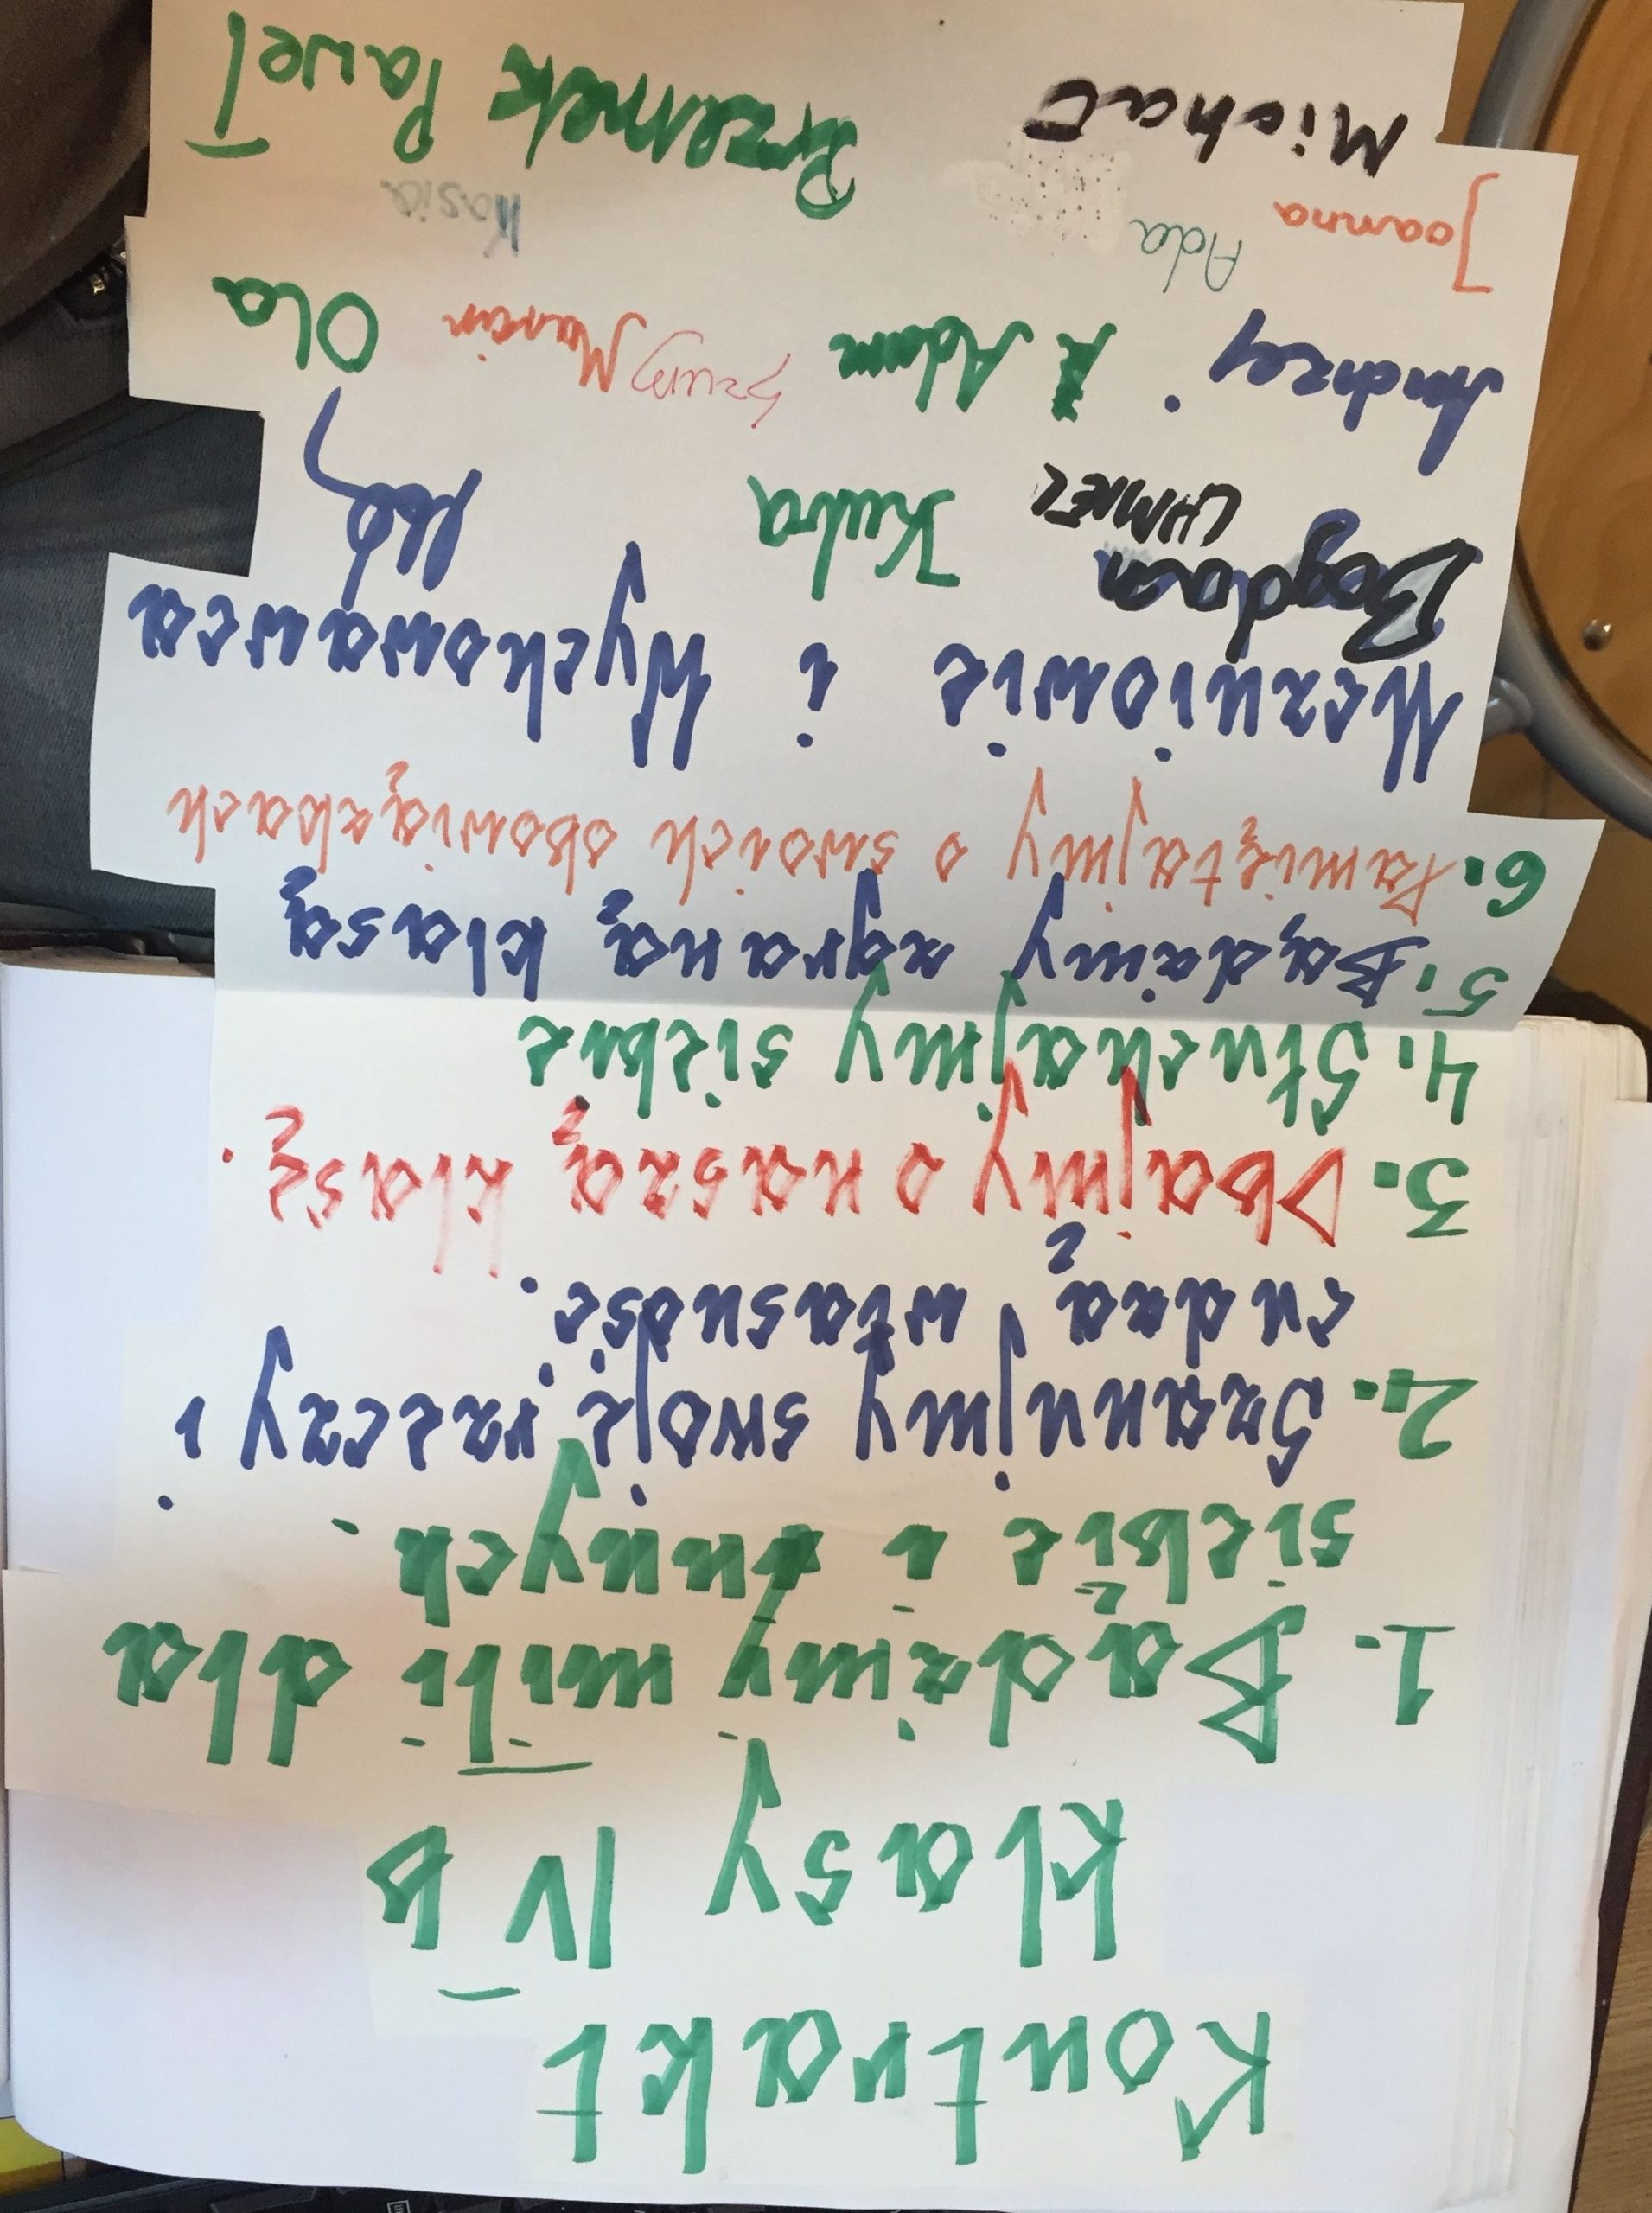 Kontrakt
klasy IV b
1. Bądźmy mili dla
siebie i innych.
2. Szanujmy swoje rzeczy i
cudzą własność.
3. Dbajmy o naszą klasę.
4. Słuchajmy siebie
5. Bądźmy zgraną klasą
6. Pamiętajmy o swoich obowiązkach
Uczniowie i Wychowawca
Bogdan CHMIEL Kuba
Andrzej Adam Szumy Marcin Ola
Joanna Ada Kasia
Michał Przemek Paweł